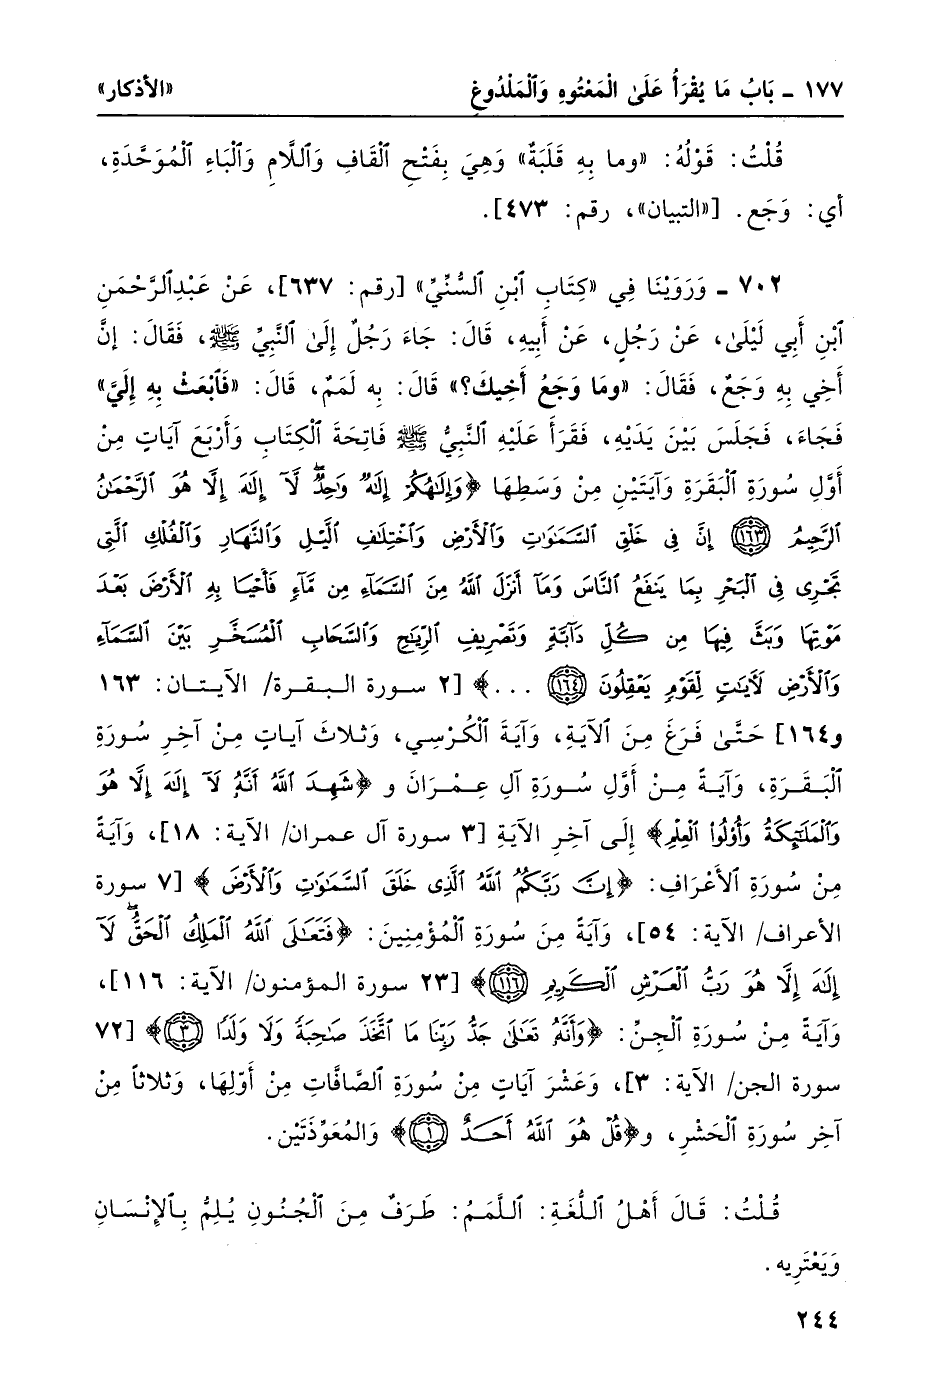 ١٧٧ ـ بَابُ مَا يُقْرَأُ عَلَىٰ الْمَعْتُوهِ وَٱلْمَلْدُوغِ «الأذكار»
قُلْتُ: قَوْلُهُ: «وما بِهِ قَلَبَةٌ» وَهِيَ بِفَتْحِ ٱلْقَافِ وَٱللَّامِ وَٱلْبَاءِ ٱلْمُوَحَّدَةِ،
أي: وَجَع. [«التبيان»، رقم: ٤٧٣].
٧٠٢ ـ وَرَوَيْنَا فِي «كِتَابِ ٱبْنِ ٱلسُّنِّيِّ» [رقم: ٦٣٧]، عَنْ عَبْدِٱلرَّحْمَنِ
ٱبْنِ أَبِي لَيْلَىٰ، عَنْ رَجُلٍ، عَنْ أَبِيهِ، قَالَ: جَاءَ رَجُلٌ إِلَىٰ ٱلنَّبِيِّ ﷺ، فَقَالَ: إنَّ
أَخِي بِهِ وَجَعٌ، فَقَالَ: «ومَا وَجَعُ أَخِيكَ؟» قَالَ: بِهِ لَمَمٌ، قَالَ: «فَٱبْعَثْ بِهِ إِلَيَّ»
فَجَاءَ، فَجَلَسَ بَيْنَ يَدَيْهِ، فَقَرَأَ عَلَيْهِ ٱلنَّبِيُّ ﷺ فَاتِحَةَ ٱلْكِتَابِ وَأَرْبَعَ آيَاتٍ مِنْ
أَوَّلِ سُورَةِ ٱلْبَقَرَةِ وَآيَتَيْنِ مِنْ وَسَطِهَا ﴿وَإِلَٰهُكُمْ إِلَٰهٌ وَٰحِدٌۖ لَّآ إِلَٰهَ إِلَّا هُوَ ٱلرَّحْمَٰنُ
ٱلرَّحِيمُ ﴿١٦٣﴾ إِنَّ فِى خَلْقِ ٱلسَّمَٰوَٰتِ وَٱلْأَرْضِ وَٱخْتِلَٰفِ ٱلَّيْلِ وَٱلنَّهَارِ وَٱلْفُلْكِ ٱلَّتِى
تَجْرِى فِى ٱلْبَحْرِ بِمَا يَنفَعُ ٱلنَّاسَ وَمَآ أَنزَلَ ٱللَّهُ مِنَ ٱلسَّمَآءِ مِن مَّآءٍ فَأَحْيَا بِهِ ٱلْأَرْضَ بَعْدَ
مَوْتِهَا وَبَثَّ فِيهَا مِن كُلِّ دَآبَّةٍ وَتَصْرِيفِ ٱلرِّيَٰحِ وَٱلسَّحَابِ ٱلْمُسَخَّرِ بَيْنَ ٱلسَّمَآءِ
وَٱلْأَرْضِ لَأٓيَٰتٍ لِّقَوْمٍ يَعْقِلُونَ ﴿١٦٤﴾ ...﴾ [٢ سورة البقرة/ الآيتان: ١٦٣
و١٦٤] حَتَّىٰ فَرَغَ مِنَ ٱلآيَةِ، وَآيَةَ ٱلْكُرْسِي، وَثَلاثَ آيـاتٍ مِنْ آخِرِ سُورَةِ
ٱلْبَقَرَةِ، وَآيَةً مِنْ أَوَّلِ سُورَةِ آلِ عِمْرَانَ و ﴿شَهِدَ ٱللَّهُ أَنَّهُ لَآ إِلَٰهَ إِلَّا هُوَ
وَٱلْمَلَٰٓئِكَةُ وَأُو۟لُوا۟ ٱلْعِلْمِ﴾ إِلَى آخِرِ الآيَةِ [٣ سورة آل عمران/ الآية: ١٨]، وَآيَةً
مِنْ سُورَةِ ٱلأَعْرَافِ: ﴿إِنَّ رَبَّكُمُ ٱللَّهُ ٱلَّذِى خَلَقَ ٱلسَّمَٰوَٰتِ وَٱلْأَرْضَ﴾ [٧ سورة
الأعراف/ الآية: ٥٤]، وَآيَةً مِنَ سُورَةِ ٱلْمُؤْمِنِينَ: ﴿فَتَعَٰلَى ٱللَّهُ ٱلْمَلِكُ ٱلْحَقُّۖ لَآ
إِلَٰهَ إِلَّا هُوَ رَبُّ ٱلْعَرْشِ ٱلْكَرِيمِ ﴿١١٦﴾﴾ [٢٣ سورة المؤمنون/ الآية: ١١٦]،
وَآيَةً مِنْ سُورَةِ ٱلْجِنِّ: ﴿وَأَنَّهُ تَعَٰلَىٰ جَدُّ رَبِّنَا مَا ٱتَّخَذَ صَٰحِبَةً وَلَا وَلَدًا ﴿٣﴾﴾ [٧٢
سورة الجن/ الآية: ٣]، وَعَشْرَ آيَاتٍ مِنْ سُورَةِ ٱلصَّافَّاتِ مِنْ أَوَّلِهَا، وَثَلاثاً مِنْ
آخِرِ سُورَةِ ٱلْحَشْرِ، و﴿قُلْ هُوَ ٱللَّهُ أَحَدٌ ﴿١﴾﴾ وَالمُعَوِّذَتَيْنِ.
قُلْتُ: قَالَ أَهْلُ ٱللُّغَةِ: ٱللَّمَمُ: طَرَفٌ مِنَ ٱلْجُنُونِ يُلِمُّ بِٱلإِنْسَانِ
وَيَعْتَرِيهِ.
٢٤٤